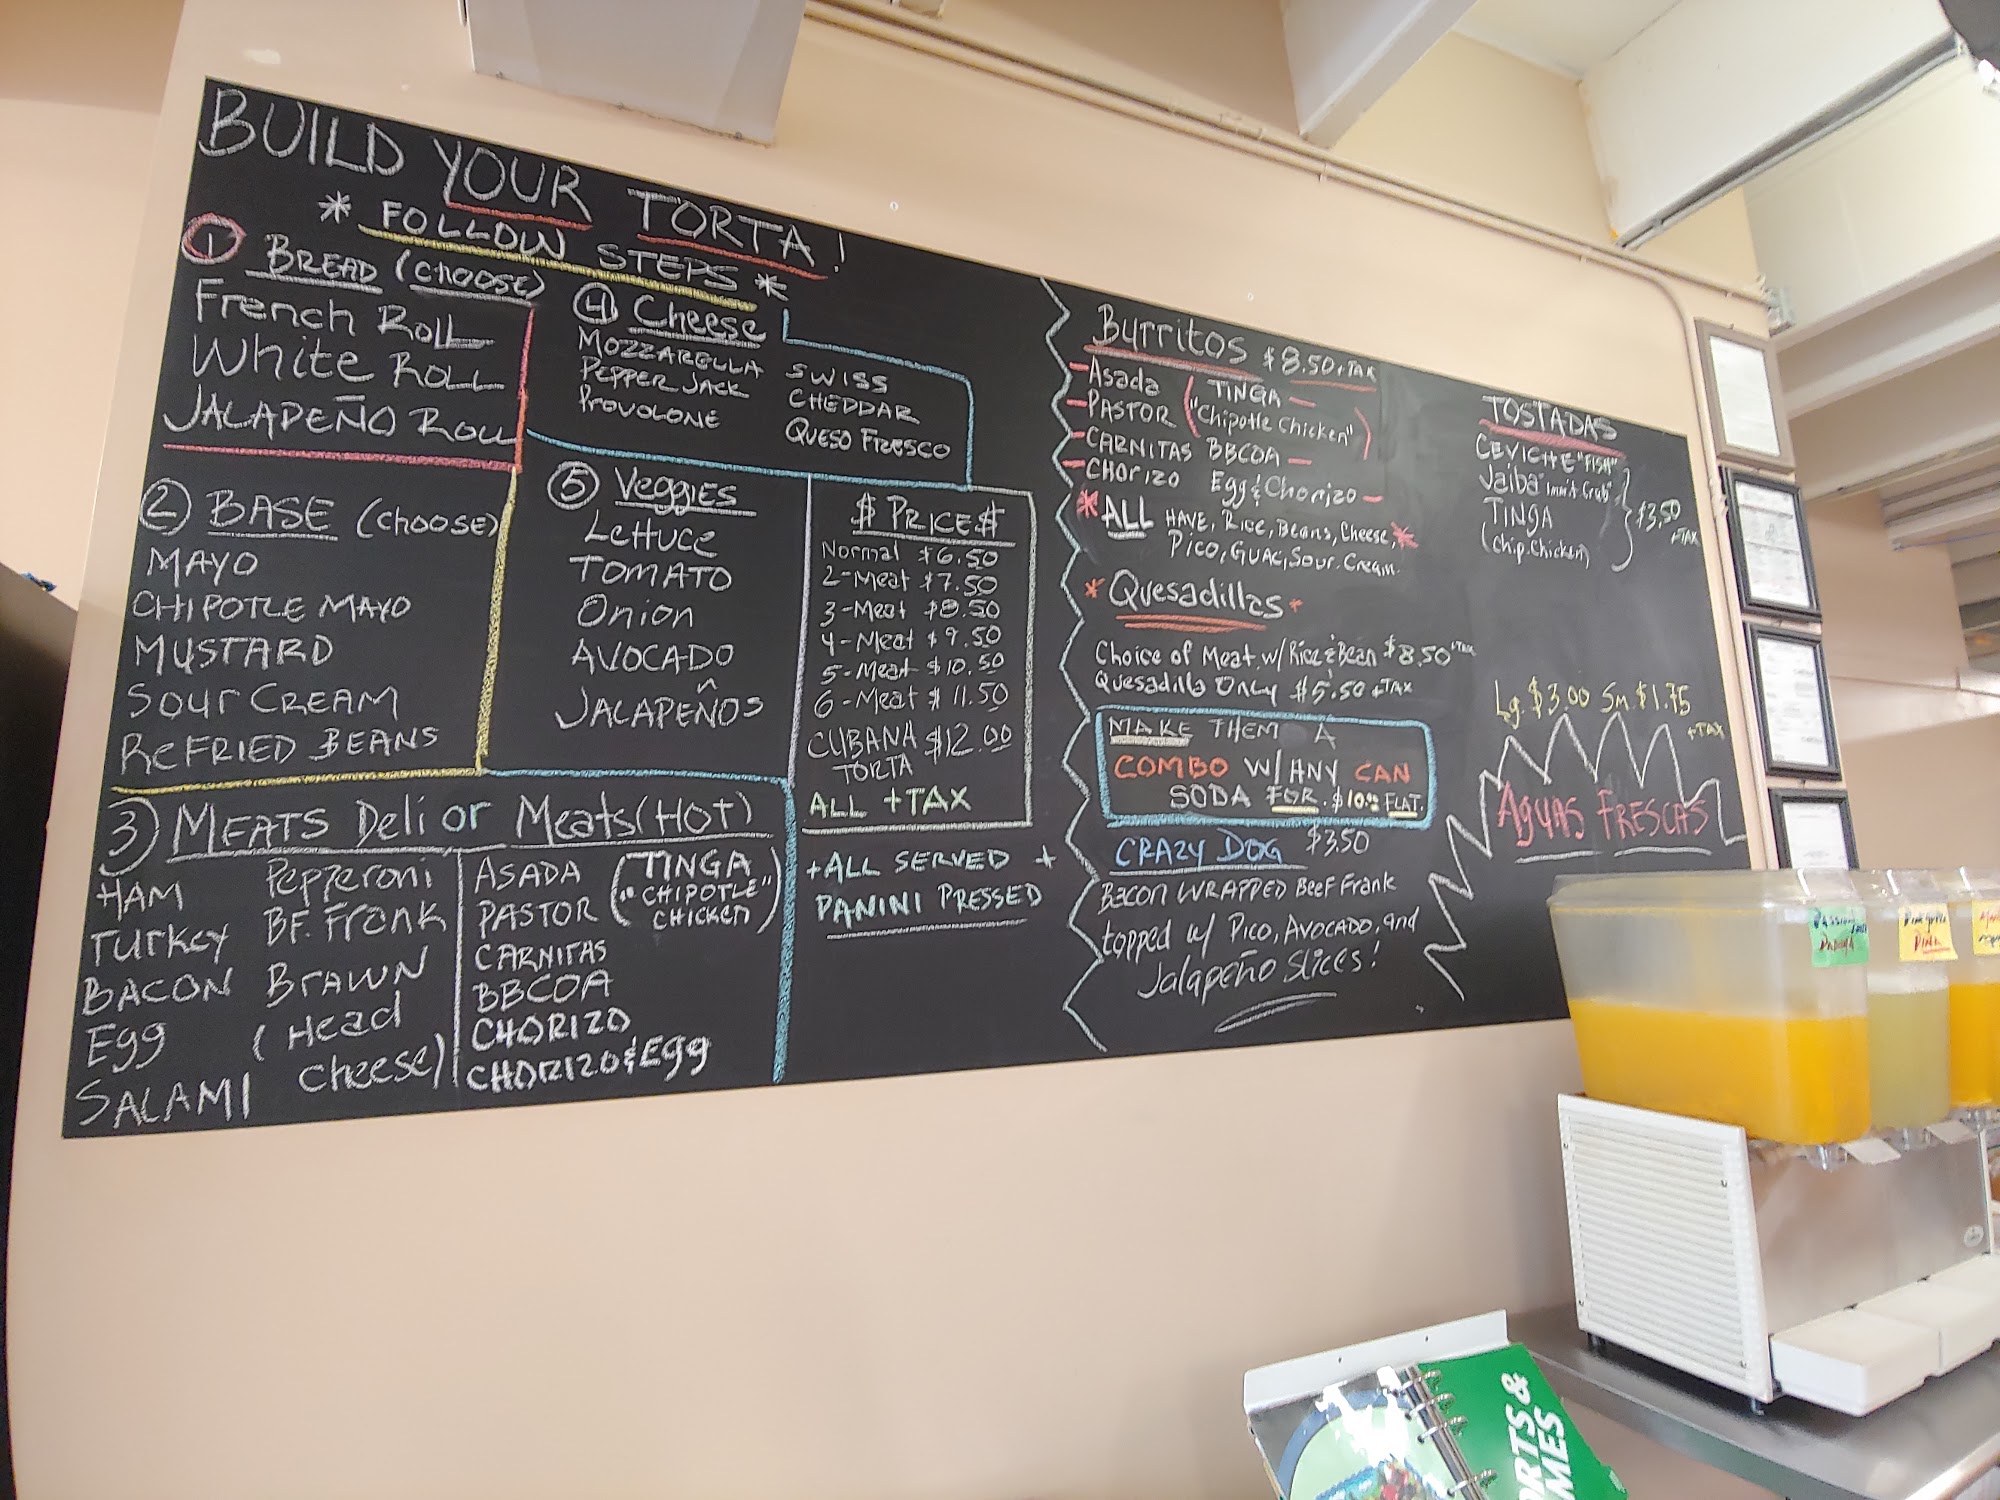 BUILD YOUR TORTA!
* FOLLOW STEPS *
1 BREAD (CHOOSE)
French Roll
White Roll
JALAPEÑO Roll
2 BASE (CHOOSE)
MAYO
CHIPOTLE MAYO
MUSTARD
SOUR CREAM
REFRIED BEANS
3) MEATS Deli or Meats (HOT)
HAM
TURKEY
BACON
Egg
SALAMI
Pepperoni
BF. Frank
BRAWN
(Head
cheese)
ASADA
PASTOR
CARNITAS
BBCOA
CHORIZO
CHORIZO & Egg
(TINGA
"CHIPOTLE"
CHICKEN)
4 Cheese
MOZZARELLA
PEPPER JACK
PROVOLONE
SWISS
CHEDDAR
QUESO FRESCO
5 Veggies
Lettuce
TOMATO
Onion
AVOCADO
JALAPEÑOS
$ PRICE $
Normal $6.50
2-Meat $7.50
3-Meat $8.50
4-Meat $9.50
5-Meat $10.50
6-Meat $11.50
CUBANA $12.00
TORTA
ALL + TAX
+ ALL SERVED +
PANINI PRESSED
Burritos $8.50 + TAX
- Asada
- PASTOR
- CARNITAS
- CHORIZO
TINGA -
("Chipotle Chicken")
BBCOA -
Egg & Chorizo -
* ALL HAVE, Rice, Beans, Cheese, *
Pico, GUAC, Sour. Cream.
* Quesadillas *
Choice of Meat w/ Rice & Bean $8.50 + TAX
Quesadilla Only $5.50 + TAX
MAKE THEM A
COMBO W/ ANY CAN
SODA FOR $10.00 FLAT.
CRAZY DOG $3.50
Bacon WRAPPED Beef Frank
topped w/ Pico, Avocado, and
Jalapeño Slices!
TOSTADAS
CEVICHE "FISH"
Jaiba "Imit Crab"
TINGA
(Chip. Chicken)
$3.50
+ TAX
Lg. $3.00 Sm $1.75
+ TAX
AGUAS FRESCAS
PINK